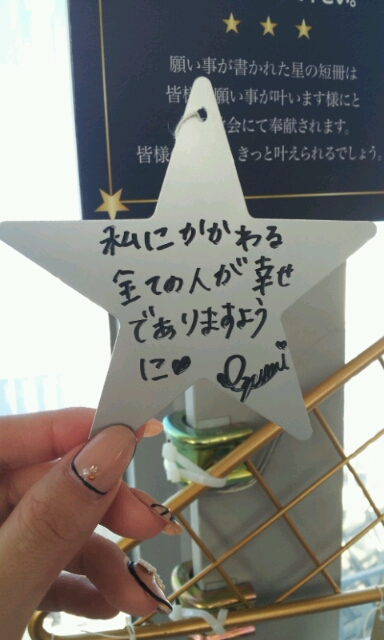 さい。
願い事が書かれた星の短冊は
皆様 願い事が叶います様にと
会にて奉献されます。
皆様 きっと叶えられるでしょう。
私にかかわる
全ての人が幸せ
でありますよう
に♥